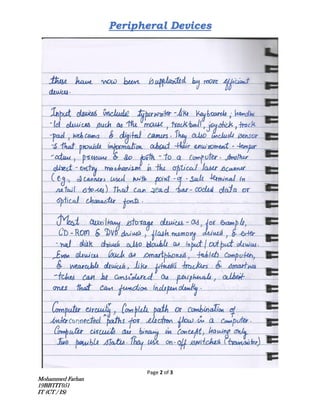 Peripheral Devices
these have now been supplanted by more efficient
devices.
Input devices include typewriter-like keyboards, handhe
-ld devices such as the mouse, trackball, joystick, track
-pad, webcams & digital camers. They also include sensor
s that provide information about their environment - temper
-ature, pressure & so forth - to a computer. Another
direct-entry mechanism is the optical laser scanner
(eg., scanners used with point-of-sale terminal in
retail stores) that can read bar-coded data or
optical character fonts.
Most auxiliary storage devices - as, for example,
CD-ROM & DVD drives, flash memory drives, & exter
-nal disk drives also double as input/output devices.
Even devices such as smartphones, tablets computers,
& wearable devices, like fitness trackers & smartwa
-tches can be considered as peripherals, albeit
ones that can function independently.
Computer circuitry, Complete path or combination of
interconnected paths for electron flow in a computer.
Computer circuits are binary in concept, having only
two possible states. They use on-off switches (transistors)
Page 2 of 3
Mohammed Farhan
19BBTIT051
IT (CT / IS)